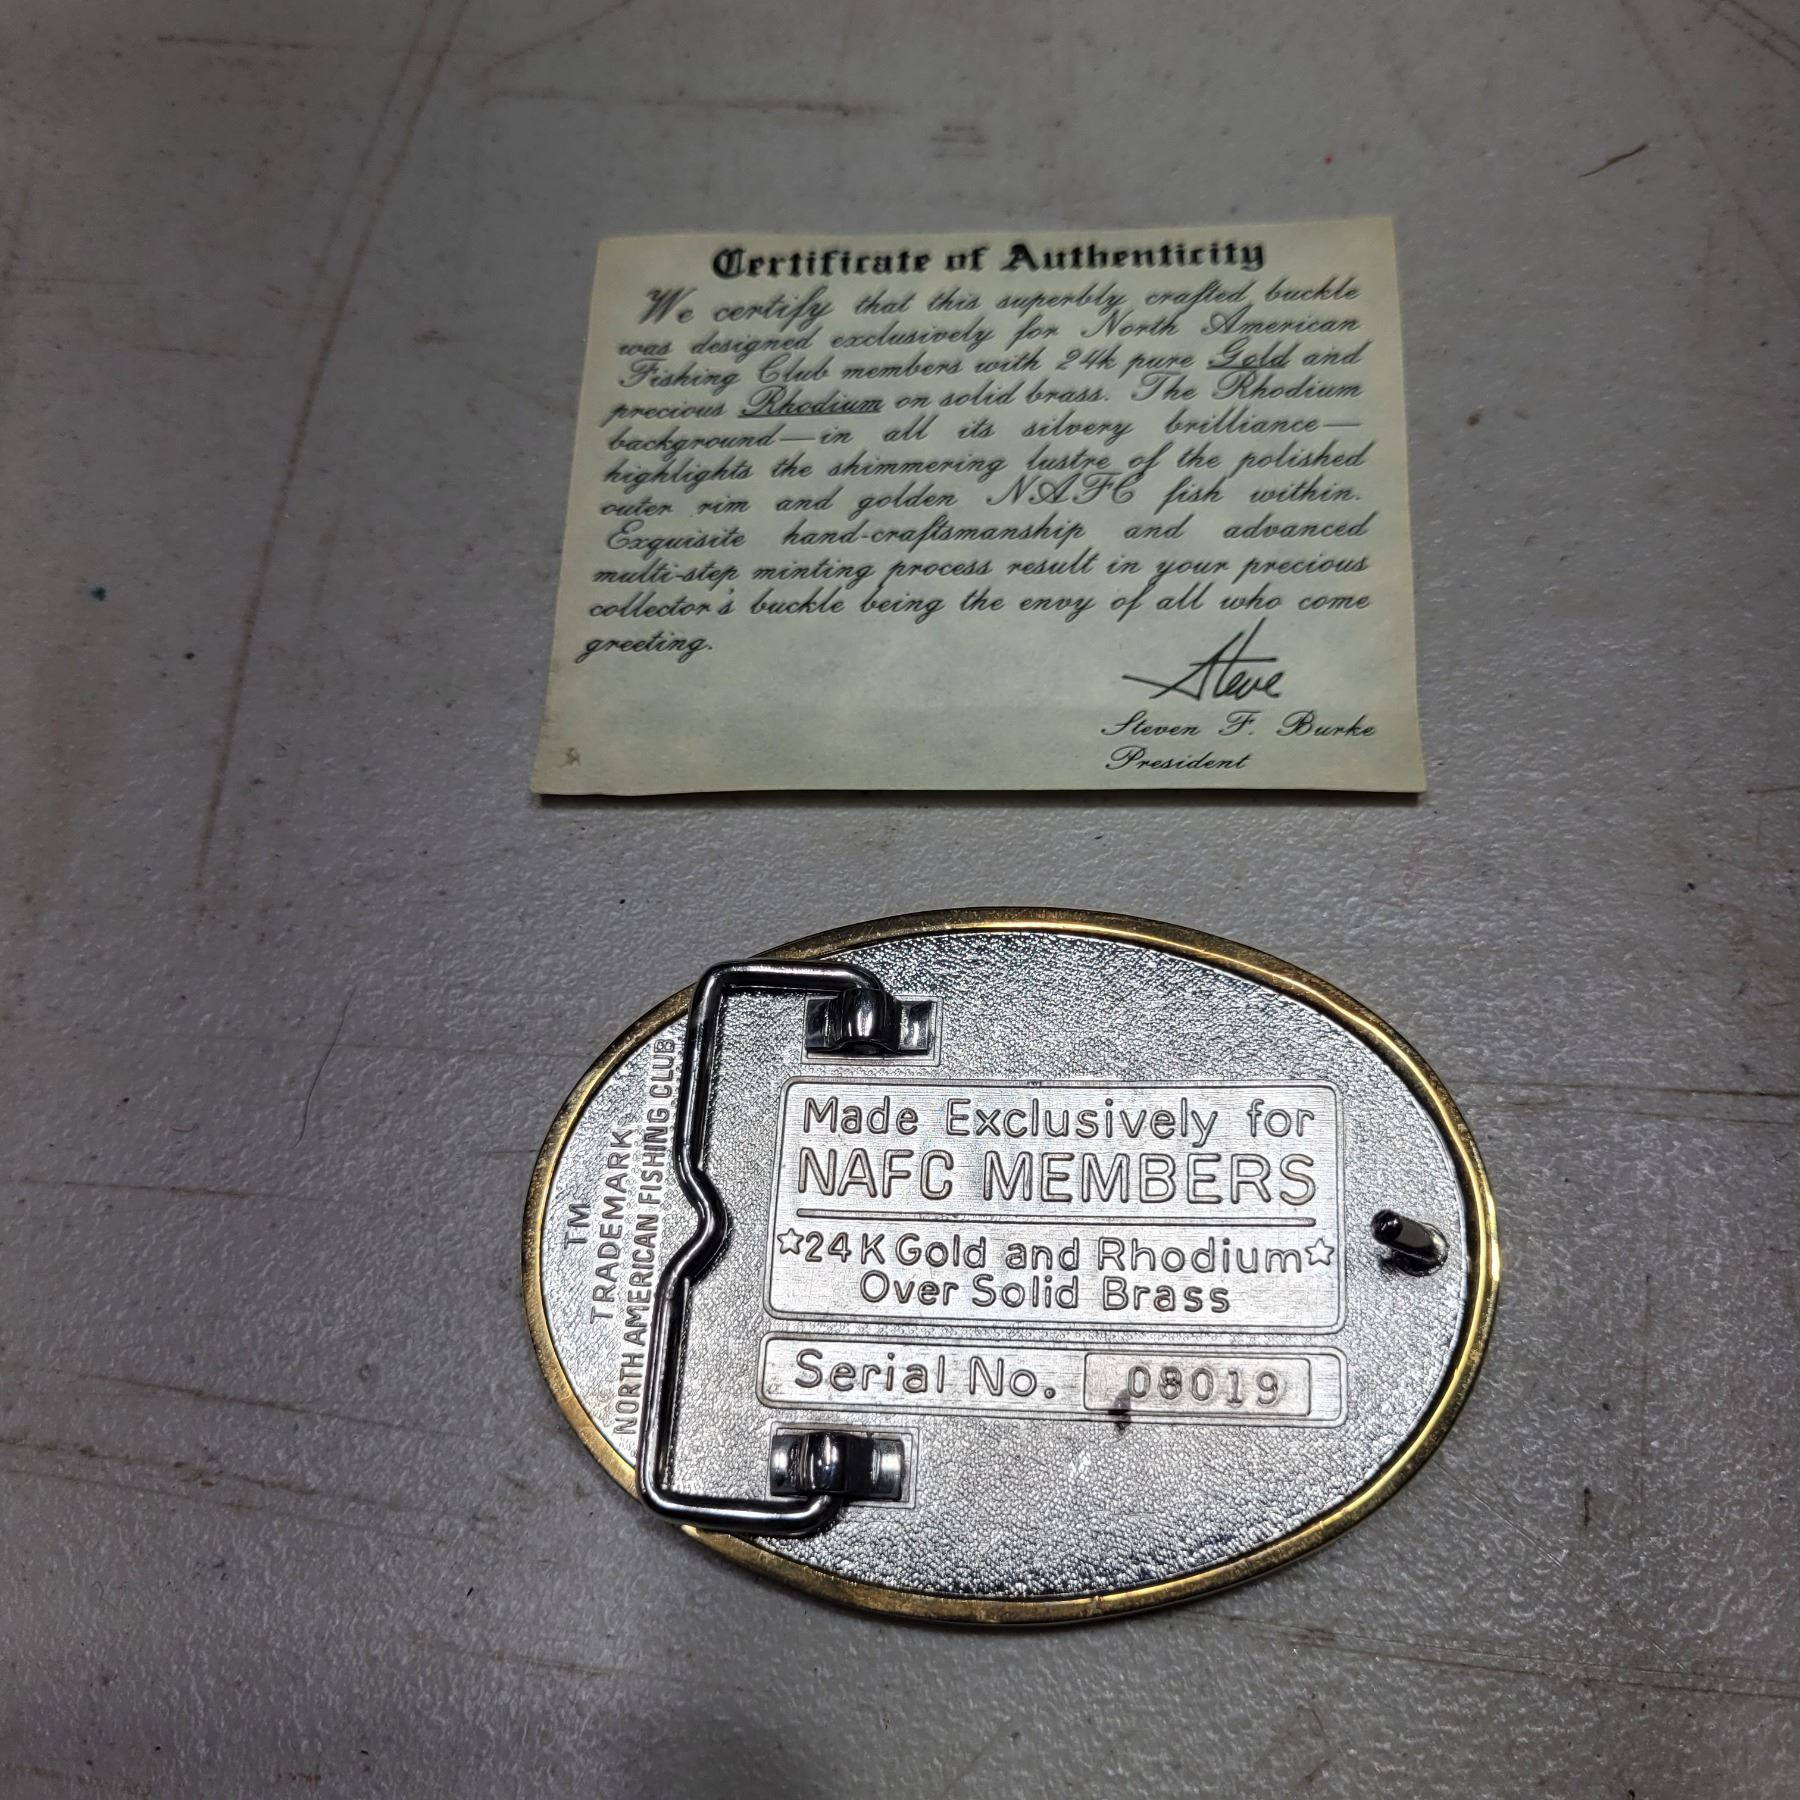 Certificate of Authenticity
We certify that this superbly crafted buckle
was designed exclusively for North American
Fishing Club members with 24k pure Gold and
precious Rhodium on solid brass. The Rhodium
background—in all its silvery brilliance—
highlights the shimmering lustre of the polished
outer rim and golden NAFC fish within.
Exquisite hand-craftsmanship and advanced
multi-step minting process result in your precious
collector's buckle being the envy of all who come
greeting.
Steve
Steven F. Burke
President
TM
TRADEMARK
NORTH AMERICAN FISHING CLUB
Made Exclusively for
NAFC MEMBERS
☆24K Gold and Rhodium☆
Over Solid Brass
Serial No. 08019